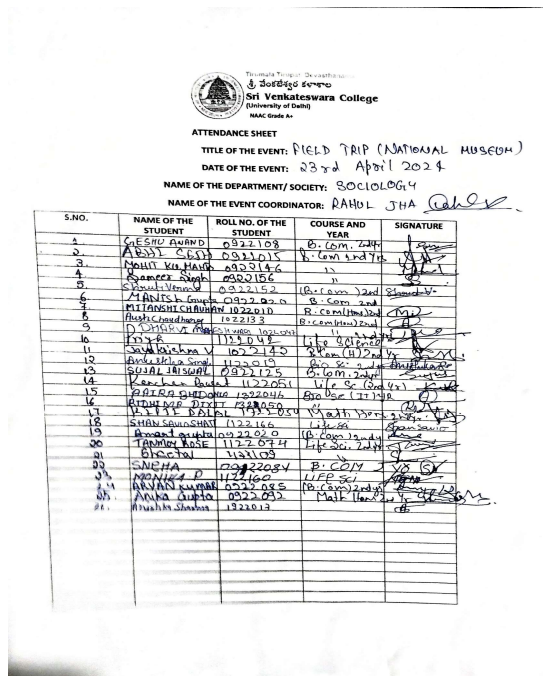 Tirumala Tirupati Devasthanams
శ్రీ వేంకటేశ్వర కళాశాల
Sri Venkateswara College
(University of Delhi)
NAAC Grade A+
ATTENDANCE SHEET
TITLE OF THE EVENT: FIELD TRIP (NATIONAL MUSEUM)
DATE OF THE EVENT: 23rd April 2024
NAME OF THE DEPARTMENT/ SOCIETY: SOCIOLOGY
NAME OF THE EVENT COORDINATOR: RAHUL JHA
S.NO. NAME OF THE STUDENT ROLL NO. OF THE STUDENT COURSE AND YEAR SIGNATURE
1. GESHU ANAND 0922108 B.Com. 2ndyr
2. 0921015 B.Com 2nd Yr
3. MOHIT 0922146 "
4. Sameer Singh 0922156 "
5. Shruti Verma 0922152 (B.Com) 2nd
6. MANISH Gupta 0922020 B.Com 2nd
7. MITANSHI CHAUHAN 1022010 B.Com(Hons)2nd
8 1022133 B.com(Hons)2nd
9 D DHARVI
10 Priya Life Science
11 Jayakrishna V 1022145 B.Com (H) 2nd yr
12 Anushka Singh 1122019
13 SUJAL JAISWAL 0922125 B.Com. 2ndyr
14 Kanchan 1122051 Life Sc (2nd yr)
15 1322046
16 RIDHIMA DIXIT
17 DALAL
18 1122166 Life Sci
19 Amant gupta 0922020 (B.Com) 2ndyr
20 TANMOY BOSE 1122074 Life Sci. 2ndyr
21 Sheetal
22 SNEHA 0922084 B.COM
23. MONIKA P 1122160 LIFE SCI
24 ARYAN KUMAR 0922085 (B.Com) 2ndyr
25. Anika Gupta 0922092
26. Anushka Sharma 1922013